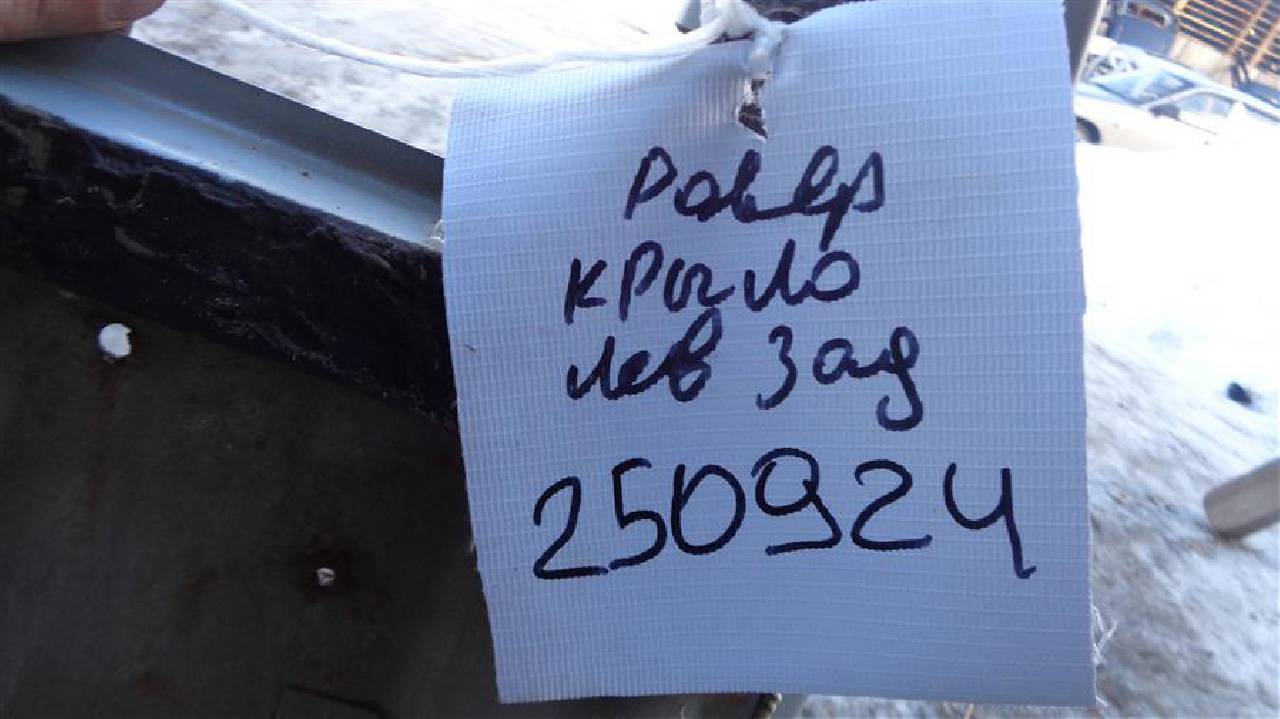 Ровер
крыло
лев зад
250924